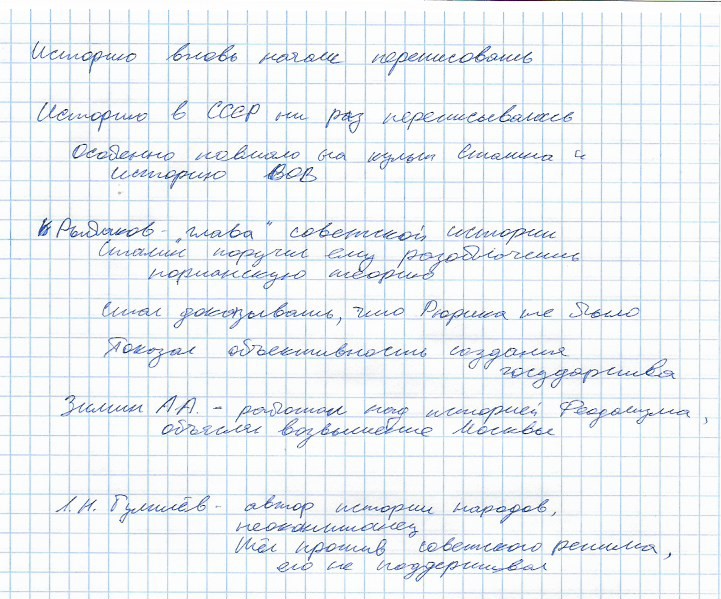 Историю вновь начали переписовать
Историю в СССР ни раз переписывалась
Особенно повлиало на культ Сталина и
историю ВОВ
Рыбаков - "глава" советской истории
Сталин поручил ему разоблочить
норманскую теорию
Стал доказывать, что Рюрика не было
Показал объективность создания
государства
Зимин А.А. - работал над историей Феодализма,
объяснил возвышение Москвы
Л.Н. Гумилёв - автор истории народов,
Шёл против советского режима,
его не поддерживал